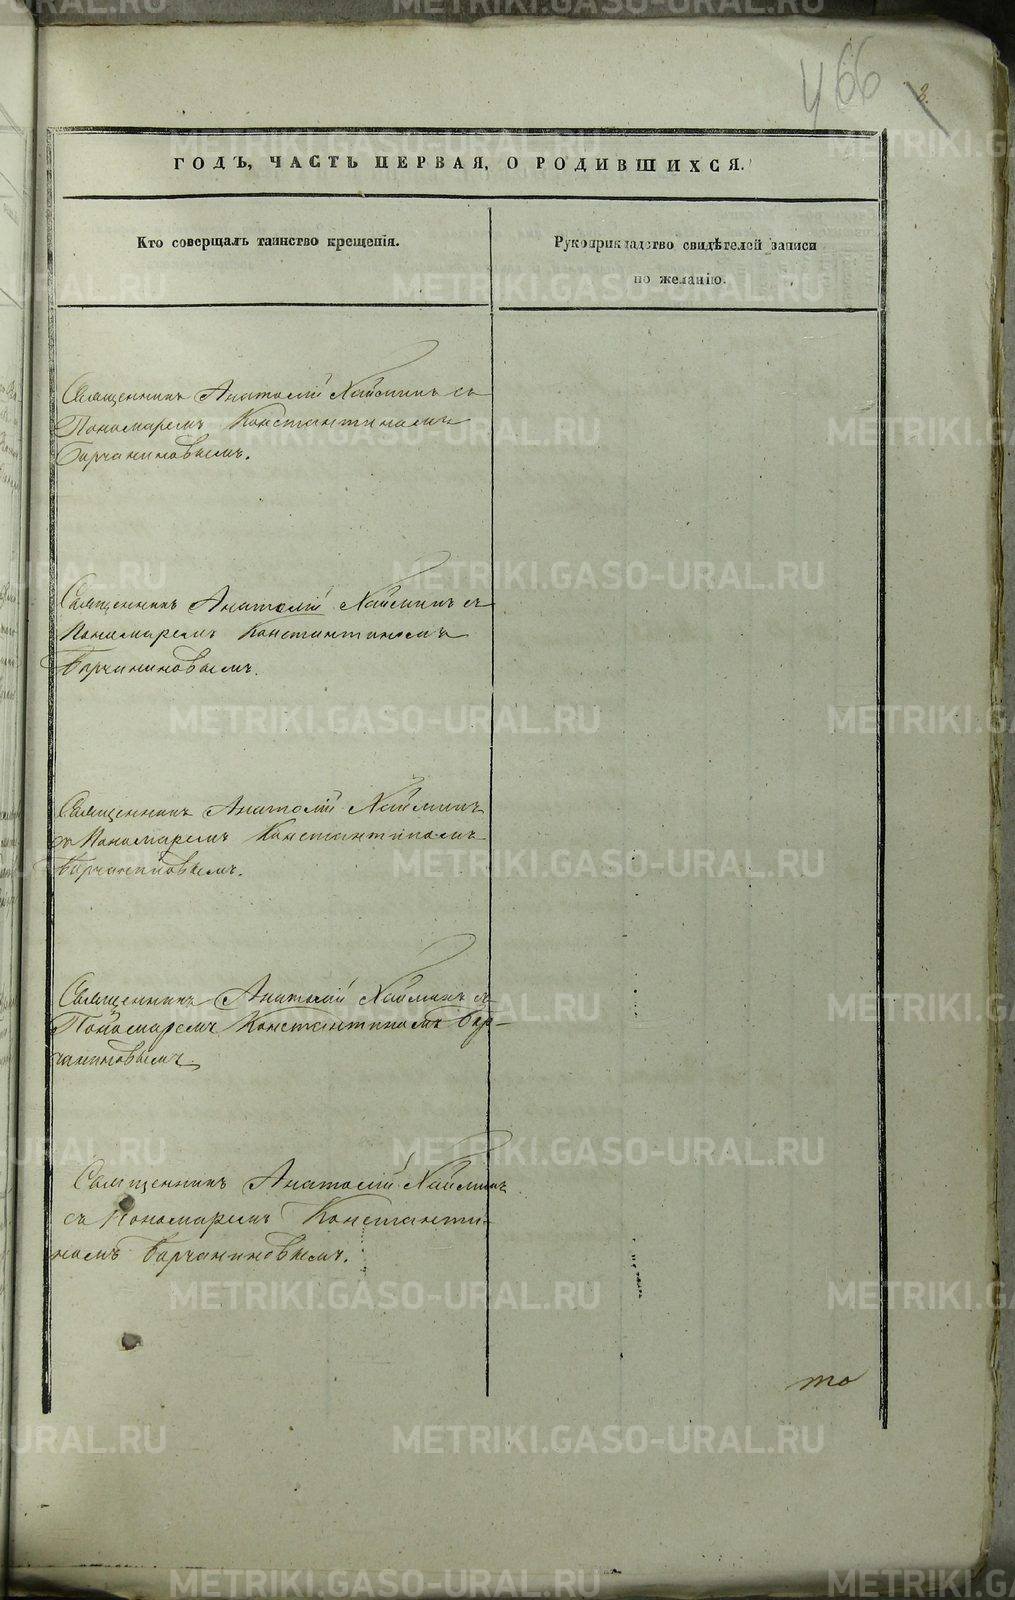 466
3.
ГОДЪ, ЧАСТЬ ПЕРВАЯ, О РОДИВШИХСЯ.
Кто совершалъ таинство крещенія.
Рукоприкладство свидѣтелей записи
по желанію.
Священникъ Анатолій Хайминъ съ
Пономаремъ Константиномъ
Барчаниновымъ.
Священникъ Анатолій Хайминъ съ
Пономаремъ Константиномъ
Барчаниновымъ.
Священникъ Анатолій Хайминъ
съ Пономаремъ Константиномъ
Барчаниновымъ.
Священникъ Анатолій Хайминъ съ
Пономаремъ Константиномъ Бар-
чаниновымъ.
Священникъ Анатолій Хайминъ
съ Пономаремъ Константи-
номъ Барчаниновымъ.
то
METRIKI.GASO-URAL.RU